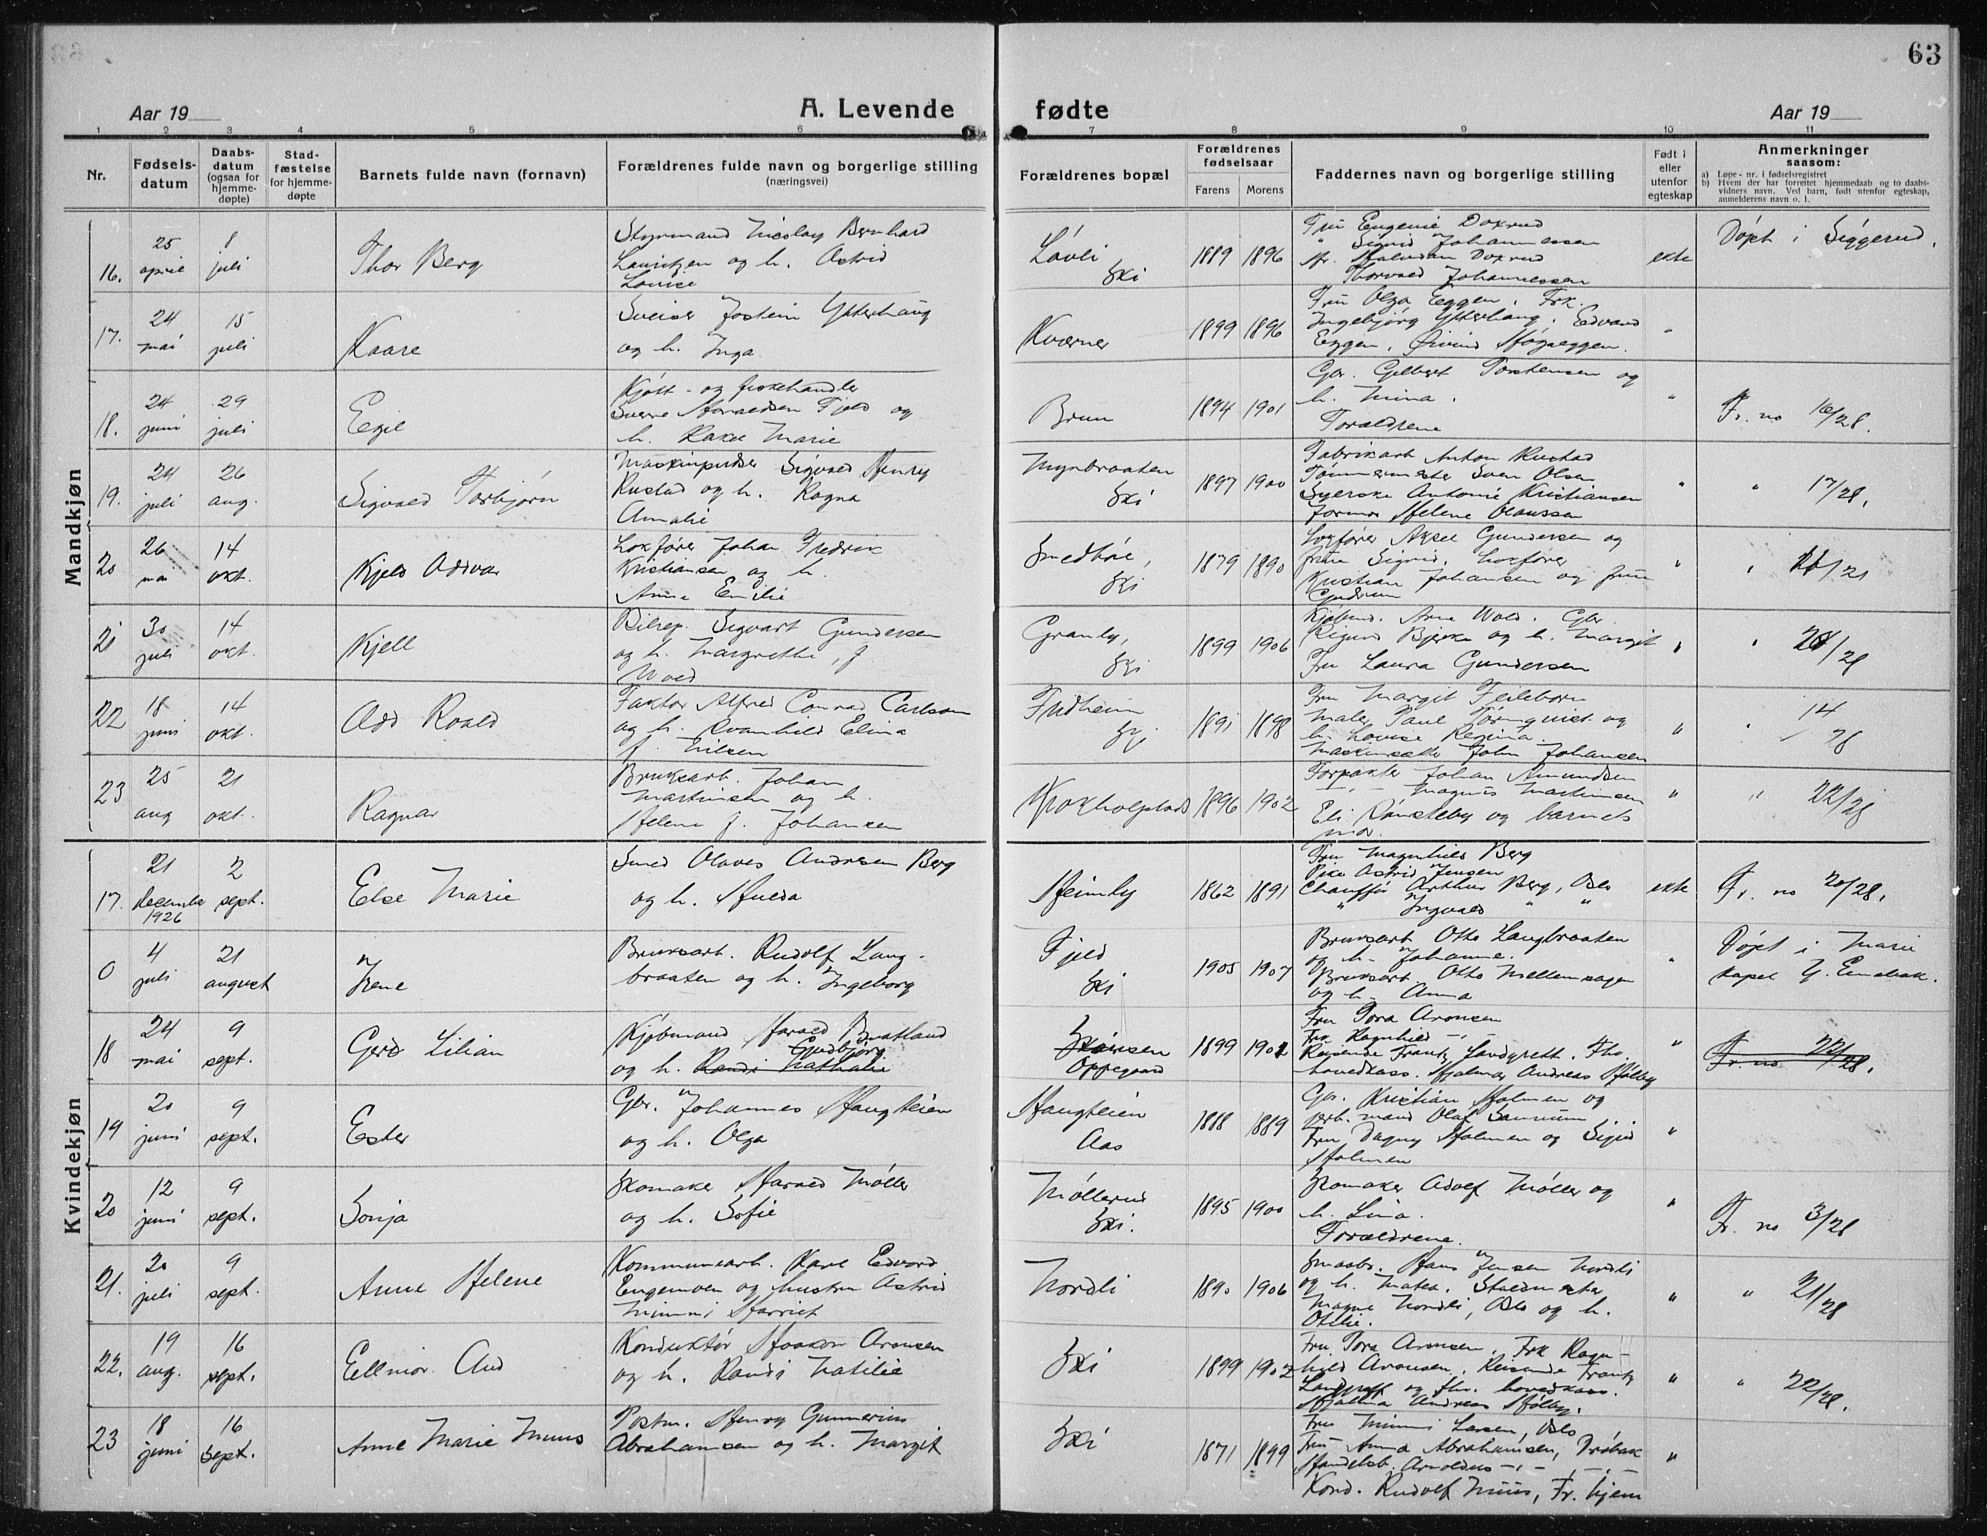 63
Aar 19
A. Levende
fødte
Aar 19
1 2 3 4 5 6 7 8 9 10 11
Nr.
Fødsels-
datum
Daabs-
datum
(ogsaa for
hjemme-
døpte)
Stad-
fæstelse
for hjemme-
døpte
Barnets fulde navn (fornavn)
Forældrenes fulde navn og borgerlige stilling
(næringsvei)
Forældrenes bopæl
Forældrenes
fødselsaar
Farens
Morens
Faddernes navn og borgerlige stilling
Født i
eller
utenfor
egteskap
Anmerkninger
saasom:
a) Løpe-nr. i fødselsregistret
b) Hvem der har forrettet hjemmedaab og to daabs-
vidners navn. Ved barn, født utenfor egteskap,
anmelderens navn o. l.
Mandkjøn
16.
25
april
8
juli
Thor Berg
Styrmand Nicolay Bernhard
Lauritzen og h. Astrid
Louise
Løvli
Ski
1889 1896
Fru Eugenie Doxrud
" Sigrid Johannessen
Hr. Halvdan Doxrud
Thorvald Johannessen
ekte
Døpt i Siggerud.
17.
24
mai
15
juli
Kaare
Sveiser Jostein Ytterhaug
og h. Inga
Kværner
1899 1896
Fru Olga Eggen. Frk.
Ingebjørg Ytterhaug. Edvard
Eggen. Øivind Høgseggen.
"
18.
24
juni
29
juli
Egil
Kjøtt- og fiskehandler
Sverre Haraldsen Fjeld og
h. Rakel Marie
Brun
1894 1901
Gbr. Gilbert Torstensen og
h. Mina.
Foreldrene
"
Fr. no 16/28.
19.
24
juli
26
aug.
Sigvald Torbjørn
Maskinpudser Sigvald Henry
Rustad og h. Ragna
Amalie
Myrbraaten
Ski
1897 1900
Fabrikarb Anton Rustad
Tømmermester Sven Olsen
Syerske Antonie Kristiansen
Jormor Helene Olaussen
"
" 17/28.
20
26
mai
14
okt.
Kjeld Oddvar
Lokfører Johan Fredrik
Kristiansen og h.
Anna Emilie
Smedbøl,
Ski
1879 1890
Lokfører Aksel Gundersen og
frue Sigrid, Lokfører
Kristian Johansen og frue
Gudrun
"
21
30
juli
14
okt.
Kjell
Bilrep. Sigvart Gundersen
og h. Margrethe, f.
Wold
Granly,
Ski
1899 1906
Kjøbmd. Arne Wold. Gbr.
Sigurd Bjerke og h. Margit
Fru Laura Gundersen
"
22
18
juni
14
okt.
Odd Roald
Faktor Alfred Conrad Carlson
og h. Svanhild Elina
f. Nilsen
Fridheim
Ski
1891 1898
Fru Margit Feileborn
Maler Paul Törnquist og
h. Lovise Regina.
Maskinsetter John Johansen
"
" 14/28
23
25
aug
21
okt.
Ragnar
Bruksarb. Johan
Martinsen og h.
Helene f. Johansen
Krokholplads
1896 1902
Forpakter Johan Amundsen
-"- Magnus Martinsen
Eli Rønsleby og barnets
mor.
"
" 22/28
Kvindekjøn
17.
21
december
1926
2
sept.
Else Marie
Smed Olaves Andresen Berg
og h. Hulda
Heimly
1862 1891
Fru Magnhild Berg
Pike Astrid Jensen
Chauffør Arthur Berg, Oslo
" Ingvald " "
ekte
Fr. no 20/28.
0
4
juli
21
august
Irene
Bruksarb. Rudolf Lang-
braaten og h. Ingeborg
Fjeld
Ski
1905 1907
Bruksarb Otto Langbraaten
og h. Johanne.
Bruksarb Otto Mellemhagen
og h. Anna
"
Døpt i Marie
kapel Y. Enebak.
18
24
mai
9
sept.
Gerd Lilian
Kjøbmand Harald Bratland
Gudbjørg
og h. Randi Nathalie
Oppegaard
1899 1902
Fru Tora Aronsen
Frk Ragnhild -"-
Reisende Frantz Landgrett. Fhv.
hovedkass. Hjalmar Andreas Hølby
"
Fr. no 22/28.
19
20
juni
9
sept.
Ester
Gbr. Johannes Haugteien
og h. Olga
Haugteien
Aas
1888 1889
Gbr. Kristian Holmen og
arb.mand Olaf Sanrum
Fru Dagny Holmen og Sigrid
Holmen
"
20
12
juni
9
sept.
Sonja
Skomaker Harald Møller
og h. Sofie
Møllerud
Ski.
1895 1900
Skomaker Adolf Møller og
h. Lina.
Foreldrene.
"
Fr. no 3/28
21.
20
juli
9
sept.
Anne Helene
Kommunearb. Karl Edvard
Engemoen og hustru Astrid
Mimmi Harriet
Nordli
1890 1906
Smaabr. Hans Jensen Nordli
og h. Matea. Staldmester
Magne Nordli, Oslo og h.
Otilie.
"
" 21/28
22.
19
aug.
16
sept.
Ellinor Aud
Konduktør Haakon Aronsen
og h. Randi Natilie
Ski
1899 1902
Fru Tora Aronsen. Frk Ragn-
hild Aronsen. Reisende Frantz
Landgrett og fhv. hovedkass.
Hjalmar Andreas Hølby.
"
" 22/28.
23
18
juni
16
sept.
Anne Marie Muus
Postm. Henry Gunnerius
Abrahamsen og h. Margit
Ski
1871 1899
Fru Mimmi Larsen, Oslo
Fru Anna Abrahamsen, Drøbak
Handelsb. Arnoldus -"- -"-
Kond. Rudolf Muus, Fr. hjem
"